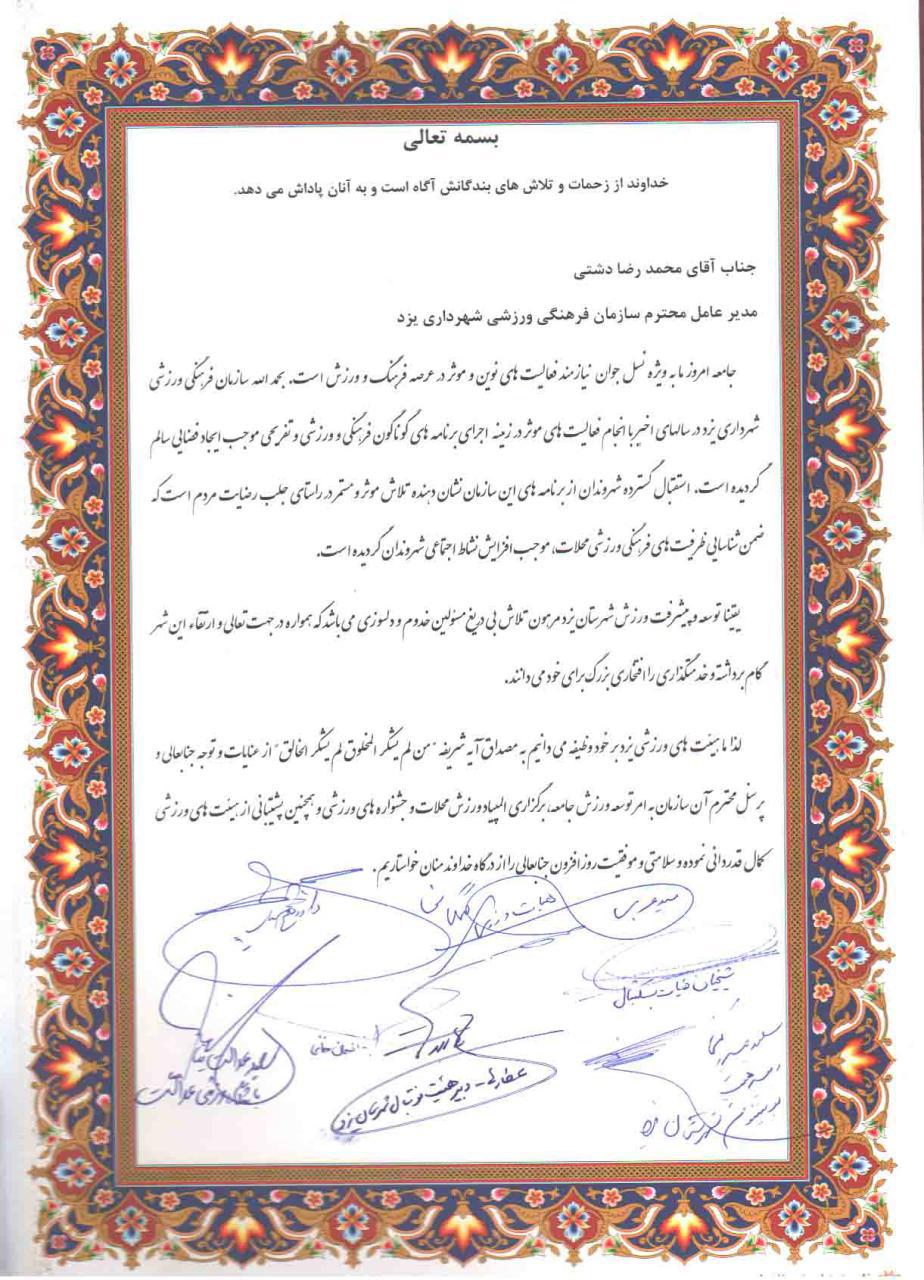 بسمه تعالی
خداوند از زحمات و تلاش های بندگانش آگاه است و به آنان پاداش می دهد.
جناب آقای محمد رضا دشتی
مدیر عامل محترم سازمان فرهنگی ورزشی شهرداری یزد
جامعه امروز ما به ویژه نسل جوان نیازمند فعالیت های نوین و موثر در عرصه فرهنگ و ورزش است. بحمد الله سازمان فرهنگی ورزشی
شهرداری یزد در سالهای اخیر با انجام فعالیت های موثر در زمینه اجرای برنامه های گوناگون فرهنگی و ورزشی و تفریحی موجب ایجاد فضایی سالم
گردیده است. استقبال گسترده شهروندان از برنامه های این سازمان نشان دهنده تلاش موثر و مستمر در راستای جلب رضایت مردم است که
ضمن شناسایی ظرفیت های فرهنگی ورزشی محلات، موجب افزایش نشاط اجتماعی شهروندان گردیده است.
یقینا توسعه و پیشرفت ورزش شهرستان یزد مرهون تلاش بی دریغ مسئولین خدوم و دلسوزی می باشد که همواره در جهت تعالی و ارتقاء این شهر
گام برداشته و خدمتگذاری را افتخاری بزرگ برای خود می دانند.
لذا ما هیئت های ورزشی یزد بر خود وظیفه می دانیم به مصداق آیه شریفه "من لم یشکر المخلوق لم یشکر الخالق" از عنایات و توجه جنابعالی و
پرسنل محترم آن سازمان به امر توسعه ورزش جامعه، برگزاری المپیاد ورزش محلات و جشنواره های ورزشی و همچنین پشتیبانی از هیئت های ورزشی
کمال قدردانی نموده و سلامتی و موفقیت روز افزون جنابعالی را از درگاه خداوند منان خواستاریم.
هیات بسکتبال
عطار - دبیر هیئت فوتبال شهرستان یزد